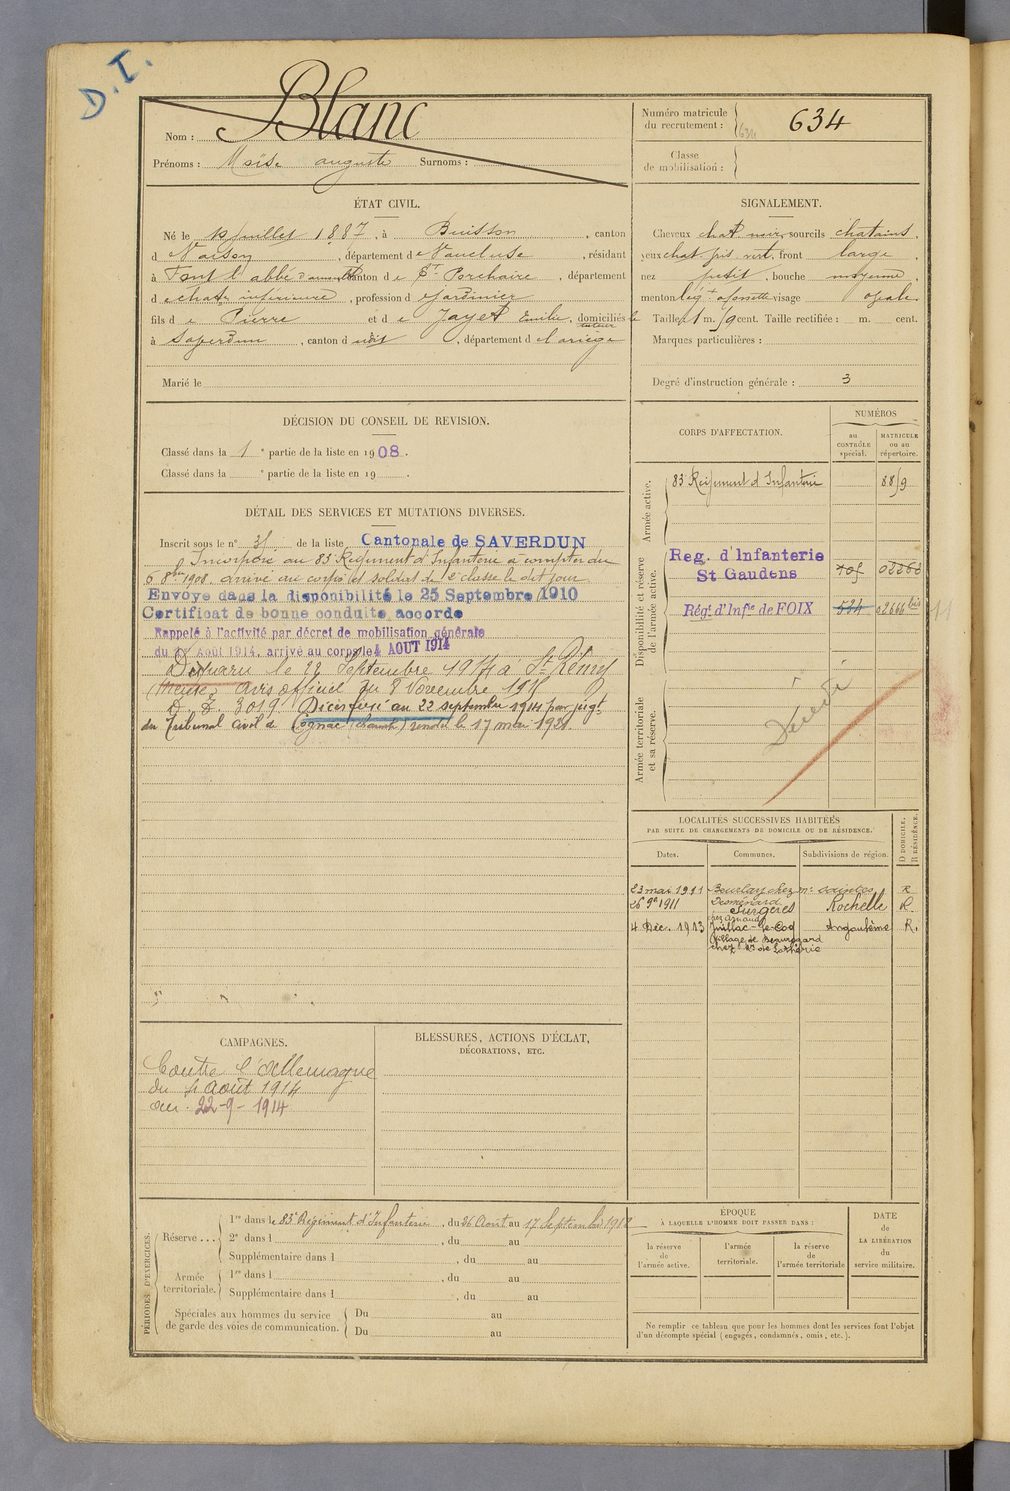 D. I.
Nom : Blanc
Prénoms : Moïse auguste Surnoms :
Numéro matricule du recrutement : 634
634
Classe de mobilisation :
ÉTAT CIVIL.
Né le juillet 1887, à Buisson, canton
d Vaison, département de Vaucluse, résidant
à Pont l'abbé d'arnoult canton de St Porchaire, département
de charte inférieure, profession d jardinier
fils de Pierre et de Jayet Emilie, domiciliés
à Saverdun, canton dudit, département de l'ariège
Marié le
SIGNALEMENT.
Cheveux chat. noir, sourcils chatains,
yeux chat gris vert, front large
nez petit, bouche moyenne,
menton lég t à fossette visage ovale
Taille 1 m. cent. Taille rectifiée : m. cent.
Marques particulières :
Degré d'instruction générale : 3
DÉCISION DU CONSEIL DE REVISION.
Classé dans la 1 e partie de la liste en 1908.
Classé dans la e partie de la liste en 19 .
CORPS D'AFFECTATION.
NUMÉROS
au CONTRÔLE spécial.
MATRICULE ou au répertoire.
Armée active.
83e Régiment d'Infanterie
Disponibilité et réserve de l'armée active.
Reg. d'Infanterie
St Gaudens
Régt d'Infie de FOIX 524 02666 bis
Armée territoriale et sa réserve.
DÉTAIL DES SERVICES ET MUTATIONS DIVERSES.
Inscrit sous le n° de la liste Cantonale de SAVERDUN
Incorporé au 83e Régiment d'Infanterie à compter du
6 8bre 1908. arrivé au corps et soldat de 2e classe le dit jour
Envoyé dans la disponibilité le 25 Septembre 1910
Certificat de bonne conduite accordé
Rappelé à l'activité par décret de mobilisation générale
du 1er Août 1914, arrivé au corps le 4 AOUT 1914
Disparu le 22 Septembre 1914 à St Rémy
(Meuse) avis officiel du 8 Novembre 191
D. D. 3019 Décès fixé au 22 septembre 1914 par jugt
du Tribunal Civil de Cognac (charente) rendu le 17 mai 1921.
LOCALITÉS SUCCESSIVES HABITÉES
PAR SUITE DE CHANGEMENTS DE DOMICILE OU DE RÉSIDENCE.
Dates. Communes. Subdivisions de région. D DOMICILE. R RÉSIDENCE.
23 mai 1911 Beurlay chez Mr Desmenard Saintes R
26 9e 1911 Surgères chez Arnaud Rochelle R.
4 Déc. 1913 Juillac-le-Coq Angoulême R.
Village de Beauregard
CAMPAGNES.
Contre l'Allemagne
du 4 Août 1914
au 22-9-1914
BLESSURES, ACTIONS D'ÉCLAT,
DÉCORATIONS, ETC.
PÉRIODES D'EXERCICES.
Réserve ...
1re dans le 83e Régiment d'Infanterie, du 26 Août au 17 Septembre 1912
2e dans l , du au
Supplémentaire dans l , du au
Armée territoriale.
1re dans l , du au
Supplémentaire dans l , du au
Spéciales aux hommes du service de garde des voies de communication.
Du au
Du au
ÉPOQUE
À LAQUELLE L'HOMME DOIT PASSER DANS :
la réserve de l'armée active.
l'armée territoriale.
la réserve de l'armée territoriale
DATE de LA LIBÉRATION du service militaire.
Ne remplir ce tableau que pour les hommes dont les services font l'objet
d'un décompte spécial (engagés, condamnés, omis, etc.).